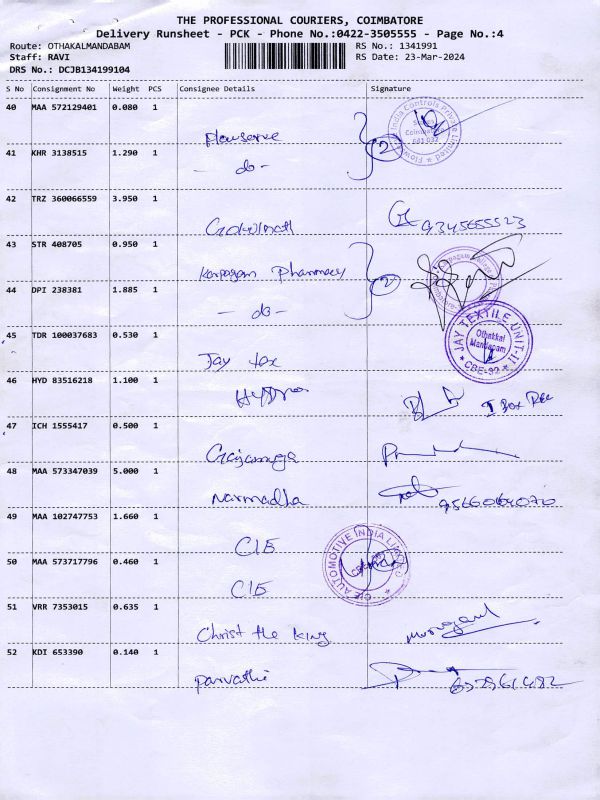 THE PROFESSIONAL COURIERS, COIMBATORE
Delivery Runsheet - PCK - Phone No.:0422-3505555 - Page No.:4
Route: OTHAKALMANDABAM RS No.: 1341991
Staff: RAVI RS Date: 23-Mar-2024
DRS No.: DCJB134199104
S No Consignment No Weight PCS Consignee Details Signature
40 MAA 572129401 0.080 1
India Controls Private Limited
Coimbatore
641 032
41 KHR 3138515 1.290 1
- do -
2
42 TRZ 360066559 3.950 1
Gokulnath 9345655523
43 STR 408705 0.950 1
Karpagam Pharmacy
2
44 DPI 238381 1.885 1
- do -
JAY TEXTILE UNIT-II
Othakkal
Mandapam
CBE-32
45 TDR 100037683 0.530 1
Jay tex
46 HYD 83516218 1.100 1
Hydro 1 Box Rec
47 ICH 1555417 0.500 1
48 MAA 573347039 5.000 1
Narmadha
49 MAA 102747753 1.660 1
CIE
CIE AUTOMOTIVE INDIA LIMITED
50 MAA 573717796 0.460 1
CIE
51 VRR 7353015 0.635 1
Christ the King Murugan
52 KDI 653390 0.140 1
Parvathi